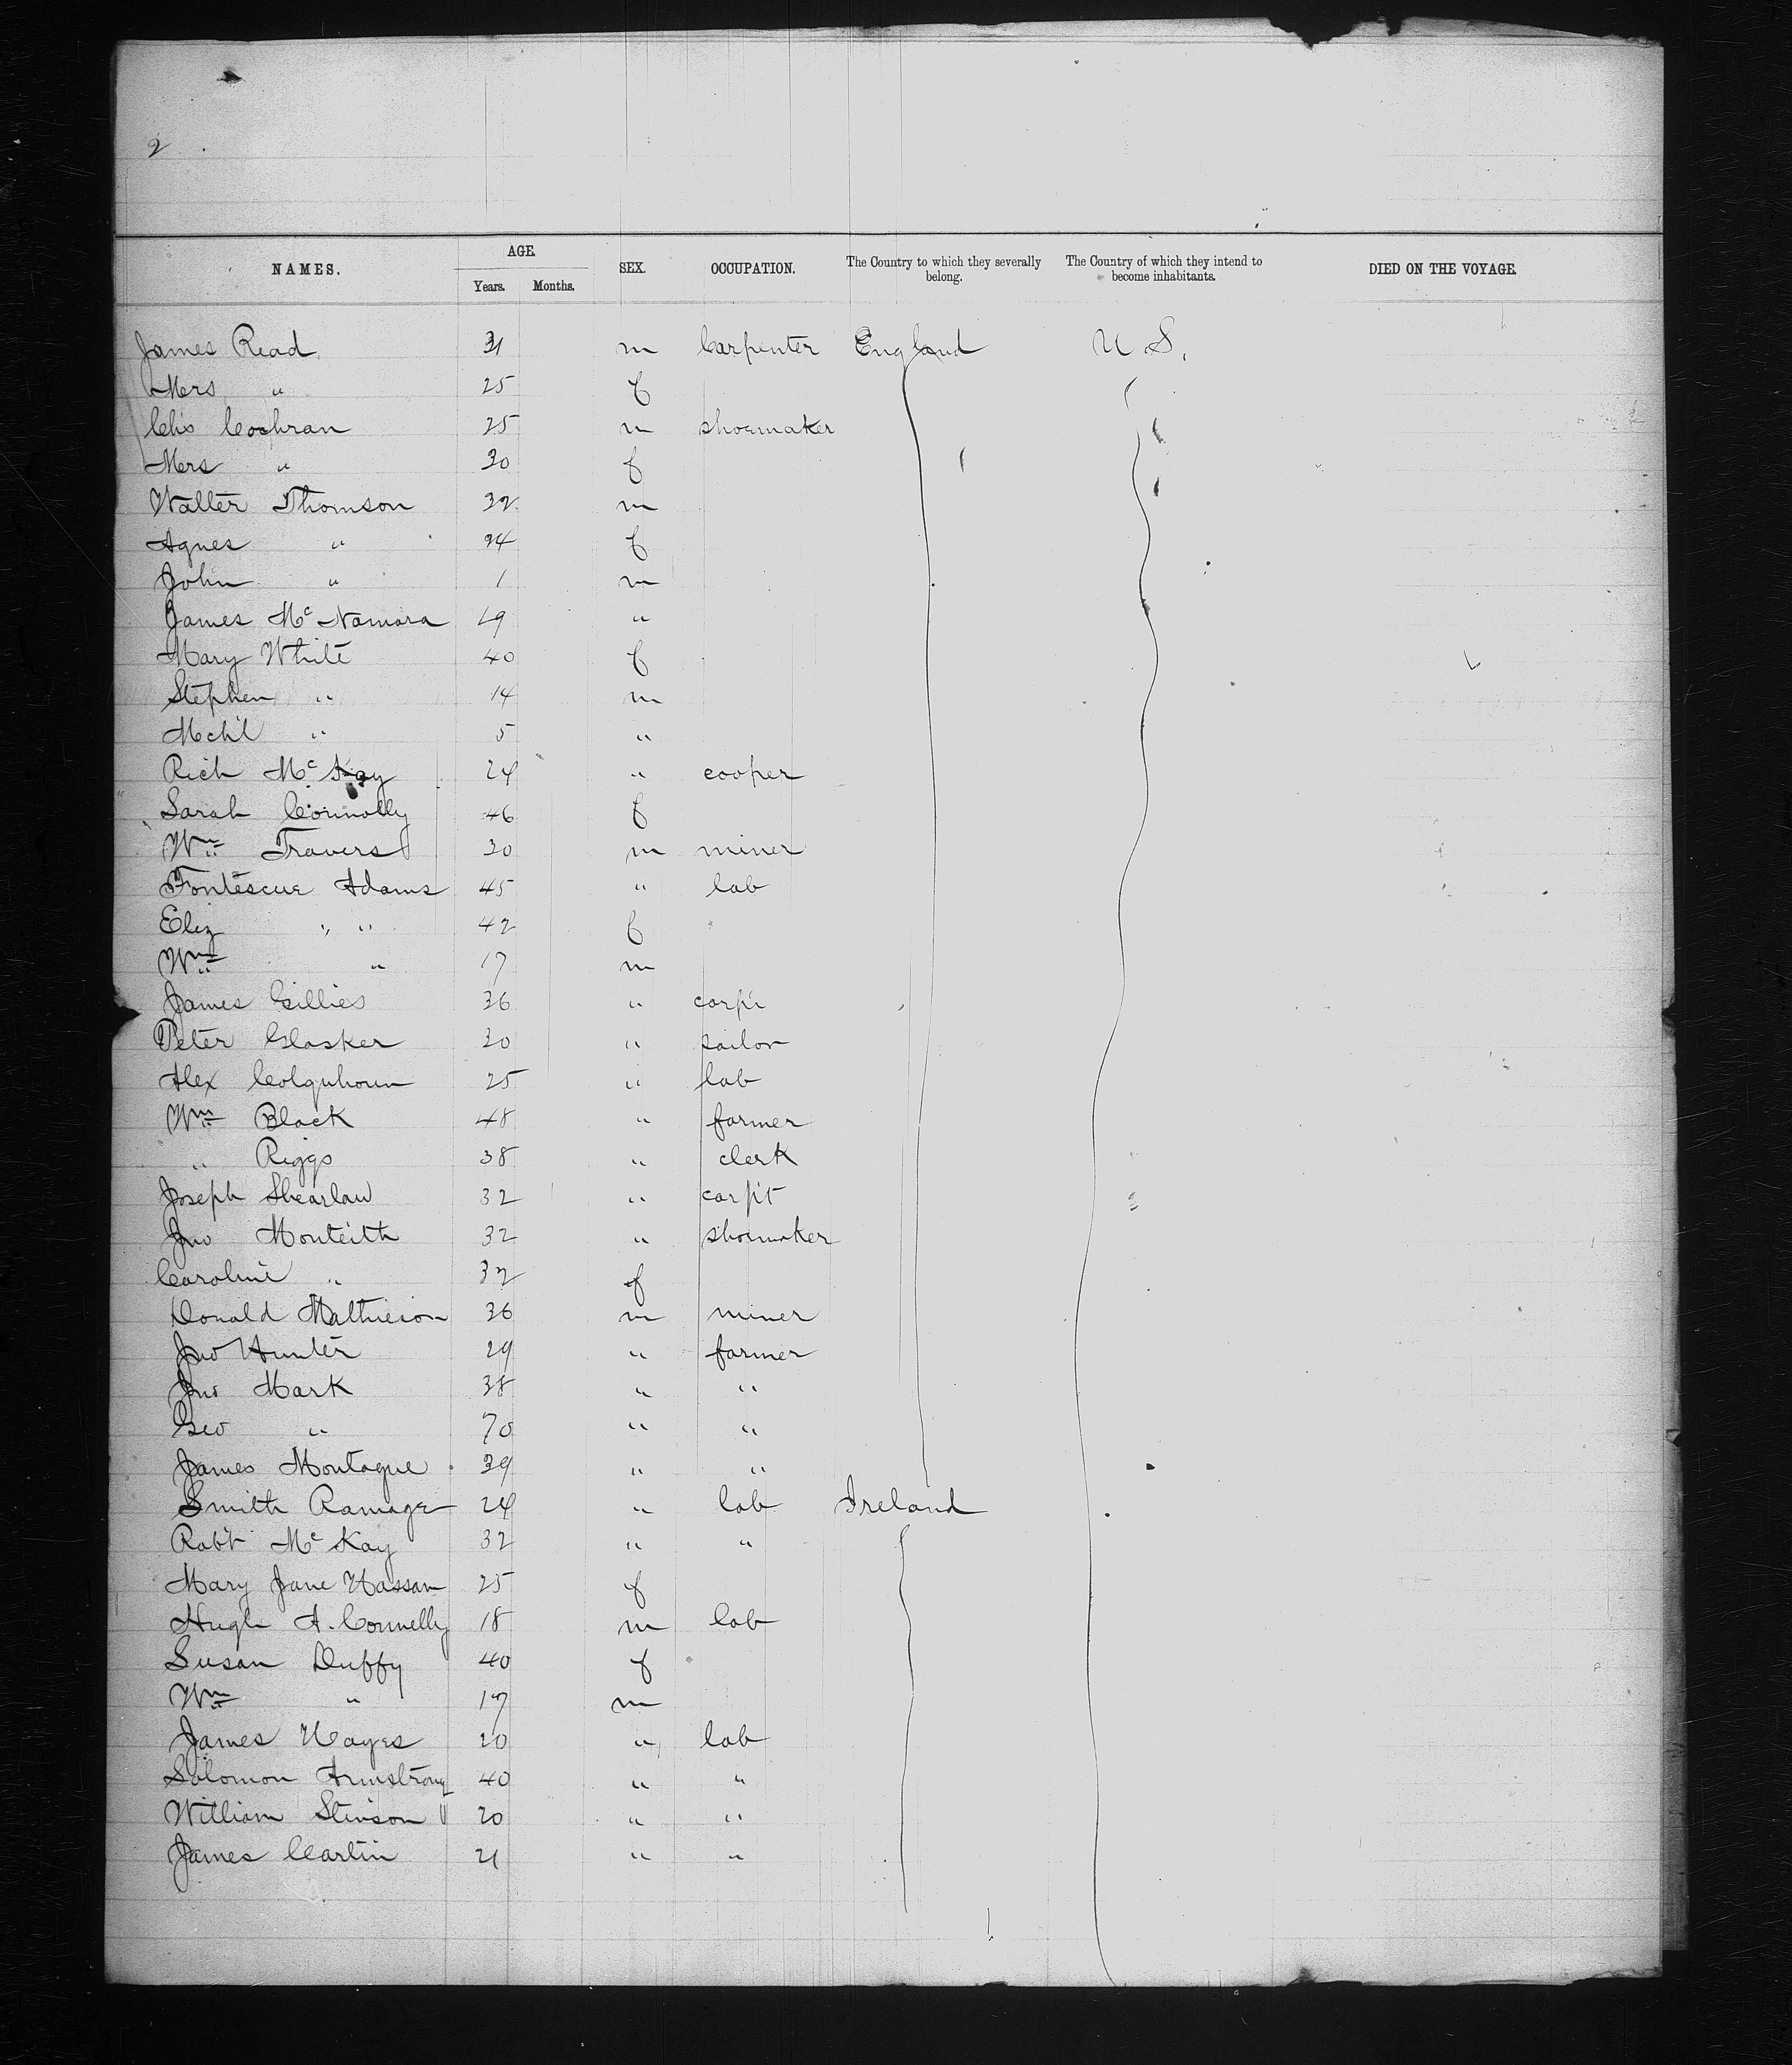 2
NAMES. AGE. Years. Months. SEX. OCCUPATION. The Country to which they severally belong. The Country of which they intend to become inhabitants. DIED ON THE VOYAGE.
James Read 31 m Carpenter England U.S.
Mers " 25 f
Chs Cochran 25 m shoemaker
Mers " 30 f
Walter Thomson 32 m
Agnes " 24 f
John " 1 m
James McNamara 19 "
Mary White 40 f
Stephen " 14 m
Mchl " 5 "
Rich McKay 24 " cooper
Sarah Connolly 46 f
Wm Travers 30 m miner
Fontescue Adams 45 " lab
Eliz " " 42 f
Wm " 17 m
James Gillies 36 "
Peter Glasker 30 " sailor
Alex Colquhoun 25 " lab
Wm Black 48 " farmer
" Riggs 38 " clerk
Joseph Shearlaw 32 " carpt
Jno Monteith 32 " shoemaker
Caroline " 32 f
Donald Mathieion 36 m miner
Jno Hunter 29 " farmer
Jno Mark 38 " "
Geo " 70 " "
James Montague 39 " "
Smith Ramage 24 " lab Ireland
Robt McKay 32 " "
Mary Jane Hassan 25 f
Hugh A. Connelly 18 m lab
Susan Duffy 40 f
Wm " 17 m
James Hayes 20 " lab
Solomon Armstrong 40 " "
William Stinson 20 " "
James Cartin 21 " "